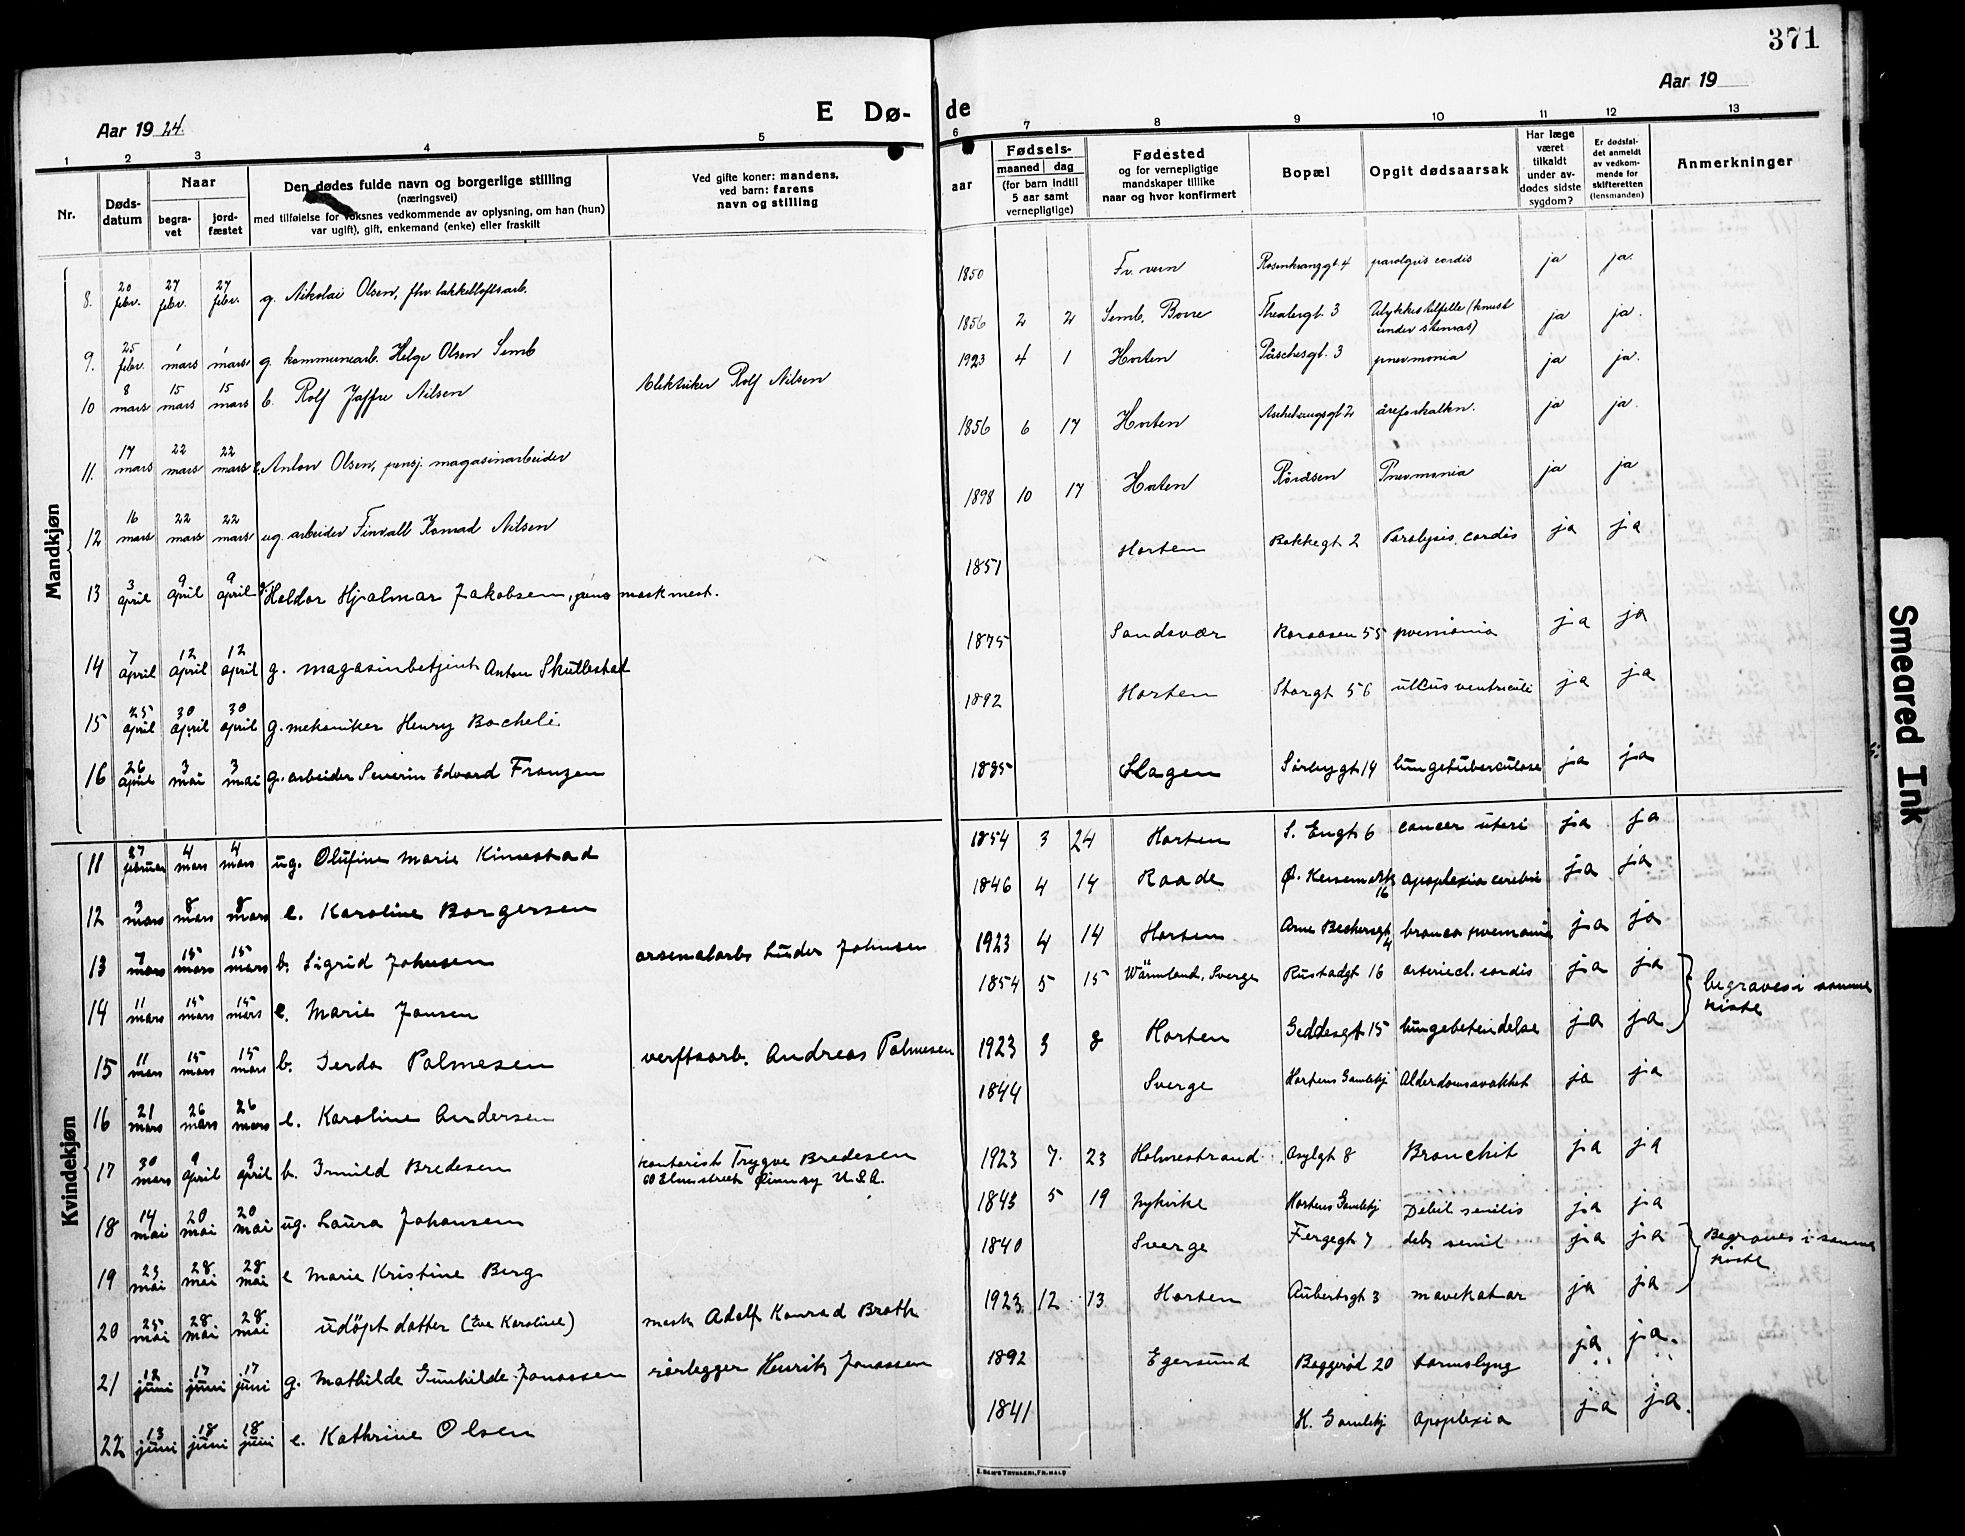 371
Aar 1924.
E Dø-
de
Aar 19
1 2 3 4 5 6 7 8 9 10 11 12 13
Nr.
Døds-
datum
Naar
begra-
vet
jord-
fæstet
Den dødes fulde navn og borgerlige stilling
(næringsvei)
med tilføielse for voksnes vedkommende av oplysning, om han (hun)
var ugift), gift, enkemand (enke) eller fraskilt
Ved gifte koner: mandens,
ved barn: farens
navn og stilling
Fødsels-
aar
maaned dag
(for barn indtil
5 aar samt
vernepligtige)
Fødested
og for vernepligtige
mandskaper tillike
naar og hvor konfirmert
Bopæl
Opgit dødsaarsak
Har læge
været
tilkaldt
under av-
dødes sidste
sygdom?
Er dødsfal-
det anmeldt
av vedkom-
mende for
skifteretten
(lensmanden)
Anmerkninger
Mandkjøn
8. 20 febr. 27 febr. 27 febr. g. Nikolai Olsen, fhv. takkelloftsarb. 1850 Fr. vern Rosenkranzgt. 4 paralysis cordis ja ja.
9. 25 febr. 1 mars 1 mars g. kommunearb. Helge Olsen Semb 1856 2 2 Semb, Borre Theatergt. 3 Ulykkestilfelle (knust
under stenras) ja ja.
10 8 mars 15 mars 15 mars b. Rolf Jaffre Nilsen elektriker Rolf Nilsen 1923 4 1 Horten Påschesgt. 3 pnevmonia ja ja.
11. 17 mars 22 mars 22 mars e. Anton Olsen, pensj. magasinarbeider 1856 6 17 Horten 2 åreforkalkn. ja ja.
12 16 mars 22 mars 22 mars ug. arbeider Finvall Konrad Nilsen 1898 10 17 Horten Rørdsen Pnevmonia ja ja
13 3 april 9 april 9 april g. Haldor Hjalmar Jakobsen, pens maskmest. 1851 Horten Bakkegt 2 Paralysis cordis ja ja
14 7 april 12 april 12 april g. magasinbetjent Anton Skullestad 1875 Sandsvær 55 pvemonia ja ja
15 25 april 30 april 30 april g. mekaniker Henry Bacheli 1892 Horten Storgt 56 ulcus ventriculi ja ja
16 26 april 3 mai 3 mai g. arbeider Severin Edvard Franzen 1885 Slagen Sørbygt 14 lungetuberculose ja ja
Kvindekjøn
11 27 februar 4 mars 4 mars ug. Olufine Marie Kimestad 1854 3 24 Horten S. Engt 6 cancer uteri ja ja
12 3 mars 8 mars 8 mars e. Karoline Borgersen 1846 4 14 Raade 16 apoplexia cerebri ja ja
13 7 mars 15 mars 15 mars b. Sigrid Johnsen arsenalarb Luder Johnsen 1923 4 14 Horten Arne Bechersgt 4 bronco pvemonia ja ja
14 11 mars 15 mars 15 mars e. Marie Jansen 1854 5 15 Wärmland, Sverge Rustadgt 16 arteriecl. cordis ja ja
begraves i samme
kiste
15 11 mars 15 mars 15 mars b. Gerda Palmesen verftsarb. Andreas Palmesen 1923 3 8 Horten Geddesgt 15 lungebetendelse ja ja
16 21 mars 26 mars 26 mars e. Karoline Andersen 1844 Sverge Hortens Gamlehj Alderdomssvakhet ja ja
17 30 mars 9 april 9 april b. Irmild Bredesen kontorist Trygve Bredesen
60 Elmstreet U.S.A. 1923 7. 23 Holmestrand Asylgt 8 Bronchit ja ja
18 14 mai 20 mai 20 mai ug. Laura Johansen 1843 5 19 Nykirke Hortens Gamlehj Debil senilis ja ja
19 23 mai 28 mai 28 mai e Marie Kristine Berg 1840 Sverge Fergegt 7 deb. senil ja ja
Begraves i samme
kiste
20 25 mai 28 mai 28 mai udöpt datter (Eve Karoline) mask Adolf Konrad Brath 1923 12 13 Horten Aubertsgt 3 mavekatar ja ja
21 12 juni 17 juni 17 juni g. Mathilde Gunhilde Jonassen rörlegger Henrik Jonassen 1892 Egersund Baggerød 20 tarmslyng ja ja.
22 13 juni 18 juni 18 juni e. Kathrine Olsen 1841 H. Gamlehj apoplexia ja ja.
Smeared Ink